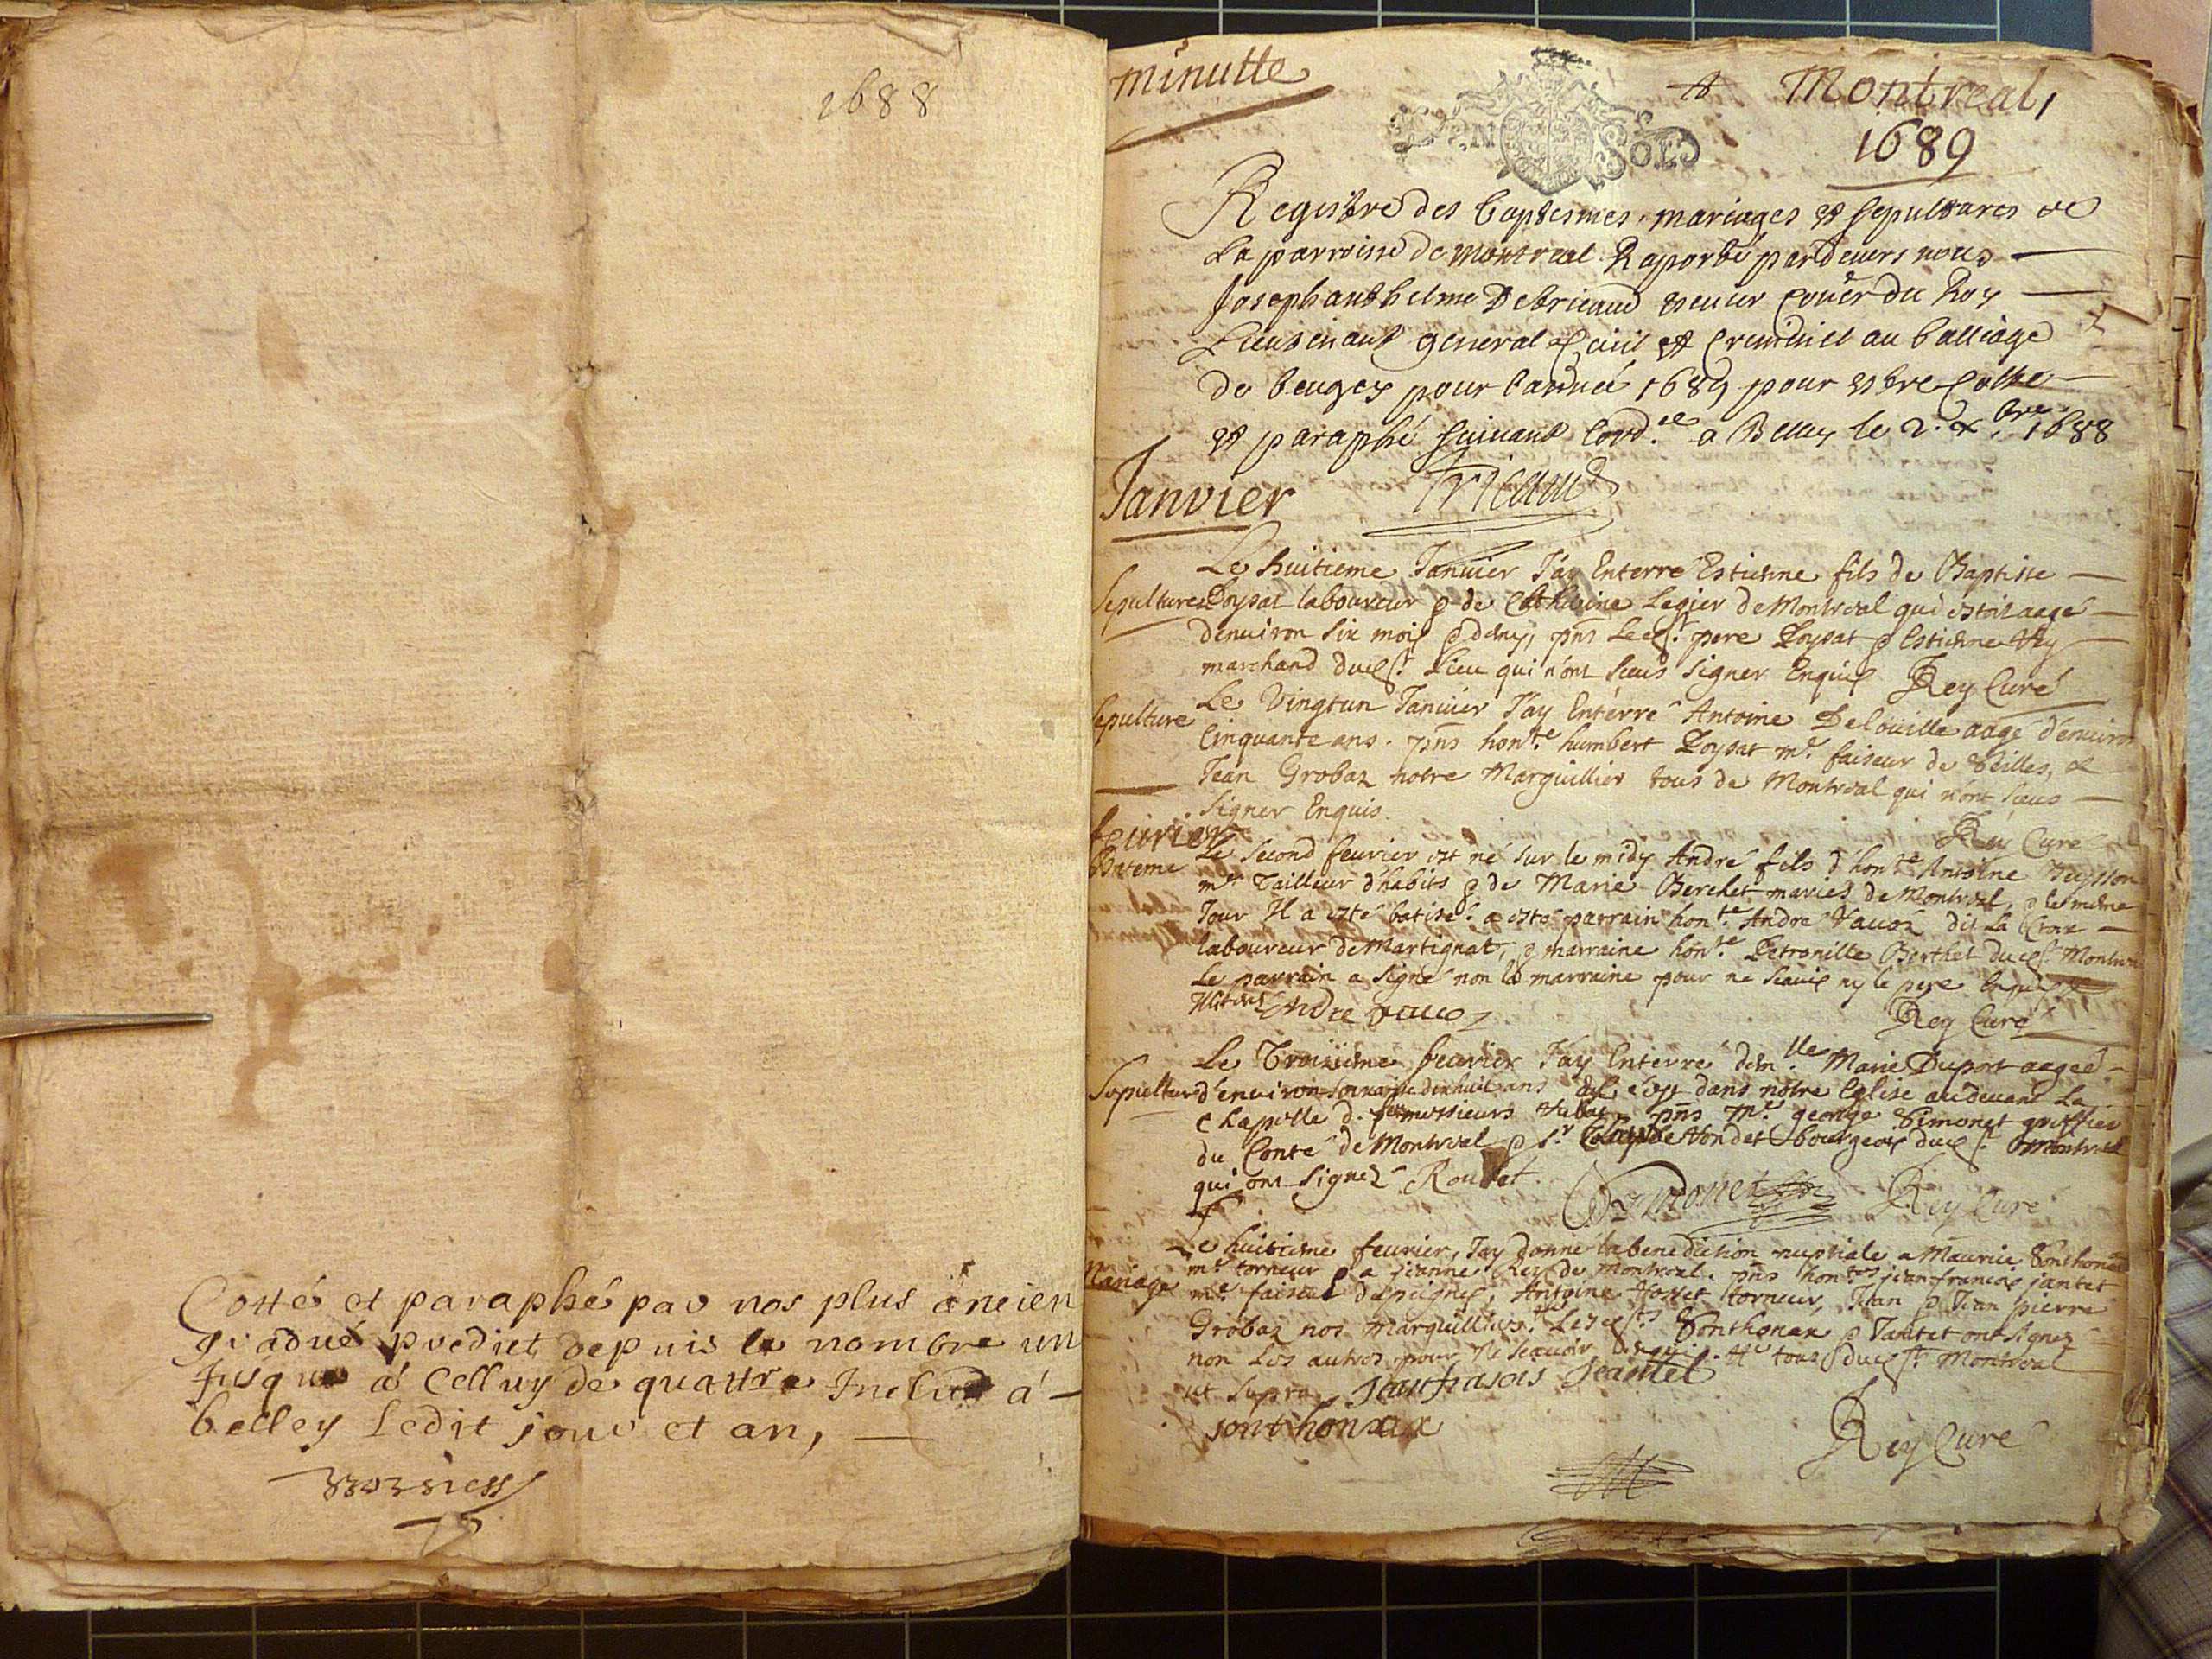 1688
Cotté et paraphé par nos plus ancien
gradué predict depuis le nombre un
Jusque à Celluy de quattre Includ à
belley Ledit jour et an,
minutte
Montreal,
1689
DEN SOLS
Registre des baptesmes, mariages et sepultures de
La parroisse de Montreal Raporté pardevers nous
Joseph anthelme Detricaud escuier Coner du Roy
Lieutenant general Civil et Criminel au balliage
de beugey pour l'année 1689 pour estre Cotté
et paraphé suivant l'ord.ce a Belley le 2. Xbre 1688
Janvier
Tricaud
Le huitieme Janvier J'ay Enterré Estienne fils de Baptiste
Sepulture Poysat laboureur & de Catherine Legier de Montreal qui estoit aagé
d'environ six mois & demy, pns led.t pere Poysat & Estienne
marchand dud.t Lieu qui n'ont sceus signer Enquis Rey Curé
Sepulture
Le Vingtun Janvier J'ay Enterré Antoine Delouille aagé d'environ
Cinquante ans. pns hon.te humbert Poysat m.e faiseur de
Jean Grobaz notre Marguillier tous de Montreal qui n'ont sceus
signer Enquis.
Rey Curé
fevrier
Bateme
Le second fevrier est né sur le midy André fils d'hon.te Antoine Buysson
m.e Tailleur d'habits & de Marie Berchet mariés de Montreal, & le mesme
Jour Il a esté batisé. a esté parrain hon.te André Vaucoz dit La
laboureur de Martignat, & marraine hon.te Petronille Berthet dud.t Montreal
Le parrain a signé non la marraine pour ne scavoir ny le pere Enquis
Andre
Rey Curé
Le Troisieme fevrier J'ay Enterré dem.lle Marie Duport aagée
Sepulture d'environ soixante dixhuit ans dans notre Eglise audevant La
Chapelle d. feu messieurs pns m.e george Simonet greffier
du Conté de Montreal & s.r bourgeois dud.t Montreal
qui ont signez Rey Curé
Le huitieme fevrier, J'ay donné la benediction nuptiale a Maurice Sonthonax
Mariage
m.e torneur & a jeanne Rey de Montreal. pns hon.tes jean francois jantet
m.e faiseur de peignes, Antoine torneur, Jean & Jean pierre
Grobaz nos Marguilliers. Lesd.ts Sonthonax & Jantet ont signez
non Les autres pour ne scavoir Enquis tous dud.t Montreal
ut supra Jean frasois Jeantet
sonthonax
Rey Curé